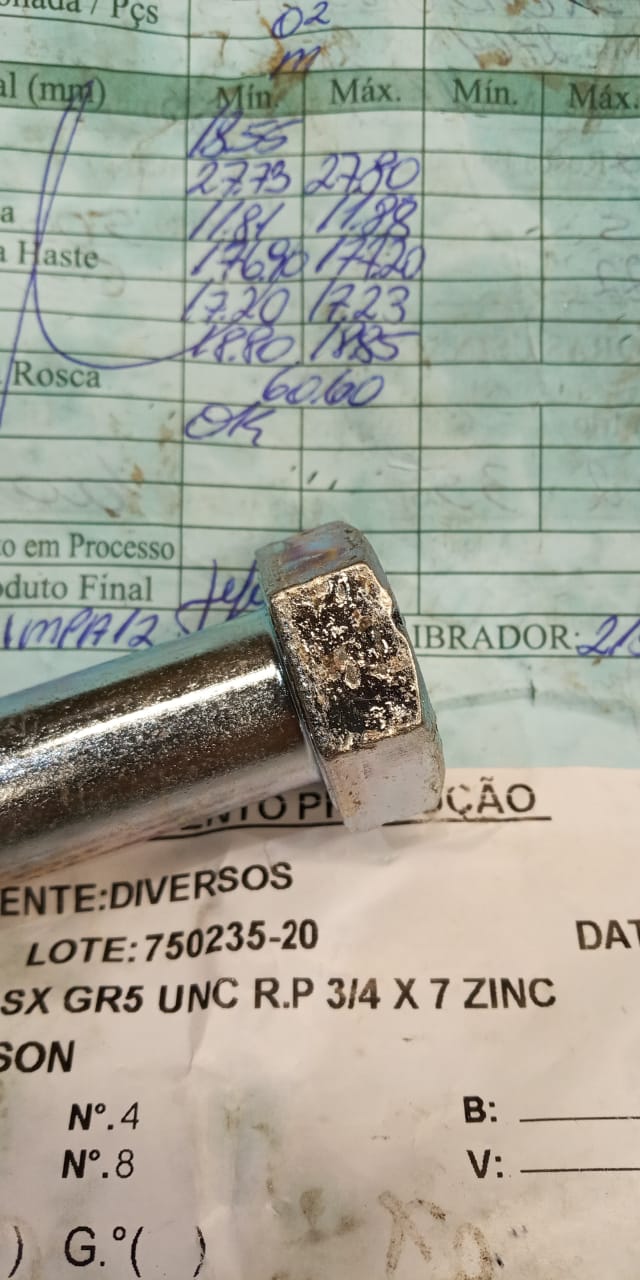 onada / Pçs 02
m
al (mm) Mín. Máx. Mín. Máx.
18.55
27.73 27.80
a 11.81 11.88
a Haste 176.90 177.20
17.20 17.23
18.80 18.85
Rosca 60.60
OK
to em Processo
oduto Final
IBRADOR:
ÇÃO
ENTE:DIVERSOS
LOTE:750235-20 DAT
SX GR5 UNC R.P 3/4 X 7 ZINC
SON
Nº.4 B:
Nº.8 V:
) G.º( )